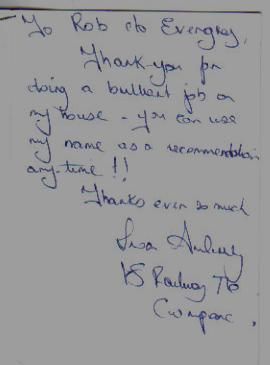 To Rob c/o Evergrey,
Thank-you for
doing a brilliant job on
my house - you can use
my name as a recommendation
any-time !!
Thanks ever so much
Lisa
Railway